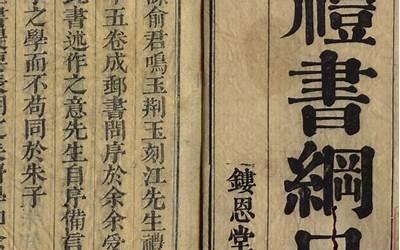 禮書綱目
鏤恩堂
俞君鳴玉荆玉刻江先生禮
十五卷成郵書問序於余余
此書述作之意先生自序備言
之學而不苟同於朱子